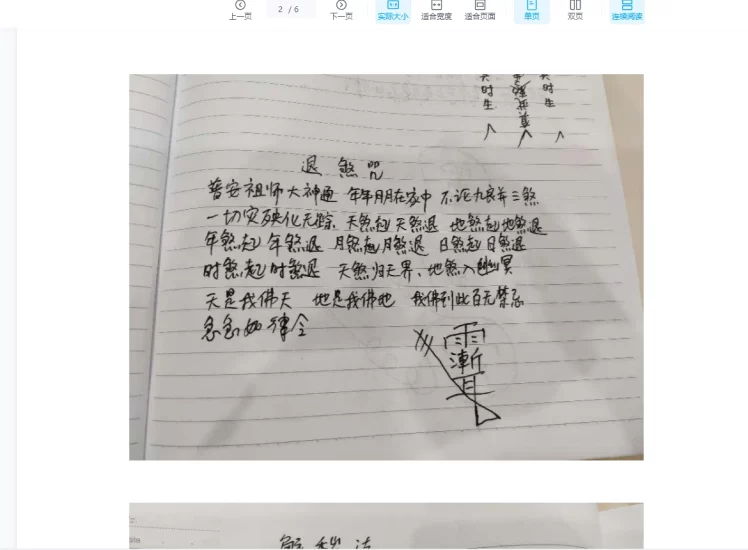 上一页
2 / 6
下一页
实际大小
适合宽度
适合页面
单页
双页
连续阅读
时生
时生
退煞咒
普安祖师大神通 年年月月在家中 不论九良并三煞
一切灾殃化无踪 天煞起天煞退 地煞起地煞退
年煞起年煞退 月煞起月煞退 日煞起日煞退
时煞起时煞退 天煞归天界、地煞入幽冥
天是我佛天 地是我佛地 我佛到此百无禁忌
急急如律令